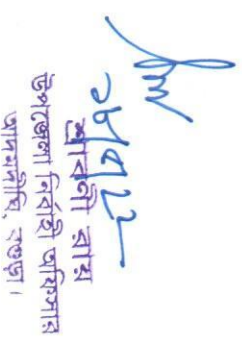 শ্রাবণী রায়
উপজেলা নির্বাহী অফিসার
আদমদীঘি, বগুড়া।